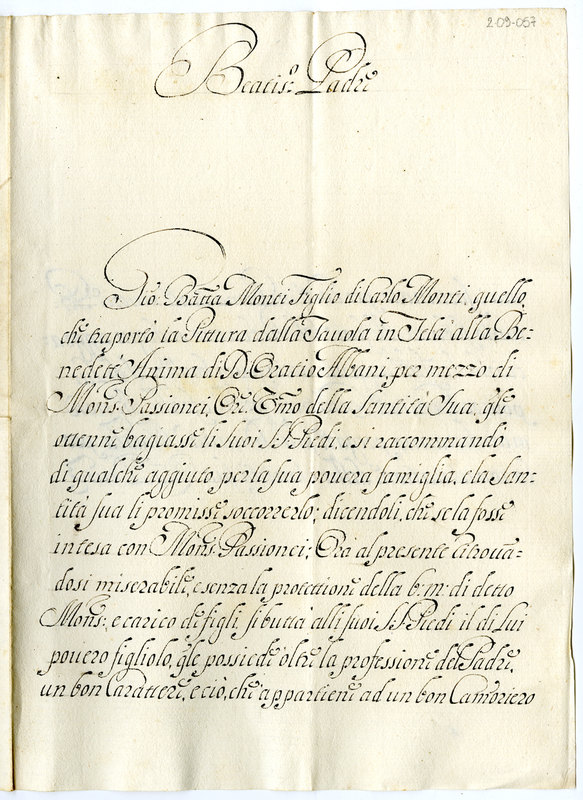 2-09-057
Beatis.º Padre
Gio: Batta Monti Figlio di Carlo Monti, quello,
che traportò la Pittura dalla Tavola in Tela alla Be-
nedetta Anima di D. Oratio Albani, per mezzo di
Mons.r Passionei,
della Santità Sua, gli
ottenne bagiasse li suoi SS. Piedi, e si raccommandò
di qualche aggiuto per la sua povera famiglia, e la San-
tità sua li promisse soccorrerlo; dicendoli, che se la fosse
intesa con Mons.r Passionei; Ora al presente ritrovan-
dosi miserabile, e senza la protettione della b: m: di detto
Mons.r, e carico di figli, si butta alli suoi SS. Piedi il di lui
povero figliolo, qle possiede oltre la professione del Padre,
un bon Carattere, e ciò, che appartiene ad un bon Camoriero